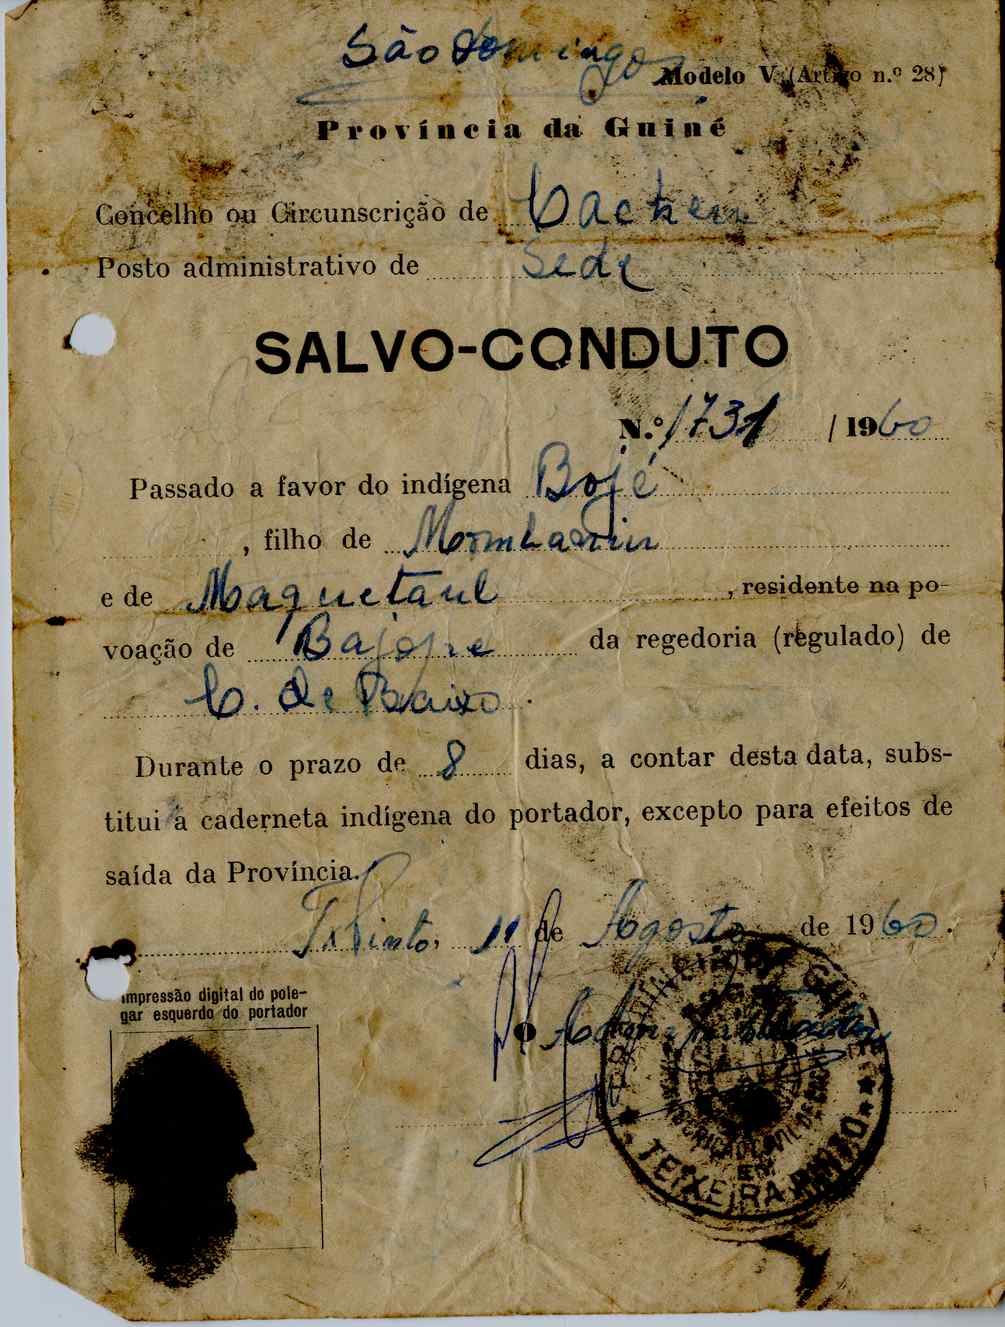 São Domingo
Modelo V (Artigo n.º 28)
Província da Guiné
Concelho ou Circunscrição de Cacheu
Posto administrativo de Sede
SALVO-CONDUTO
N.º 1731 / 1960
Passado a favor do indígena Bojé
, filho de
e de Maquetaul , residente na po-
voação de Bajope da regedoria (regulado) de
C. de Baixo
Durante o prazo de 8 dias, a contar desta data, subs-
titui a caderneta indígena do portador, excepto para efeitos de
saída da Província.
T. Pinto, 11 de Agosto de 1960.
Impressão digital do pole-
gar esquerdo do portador
O Administrador
PROVÍNCIA DA GUINÉ
TEIXEIRA PINTO